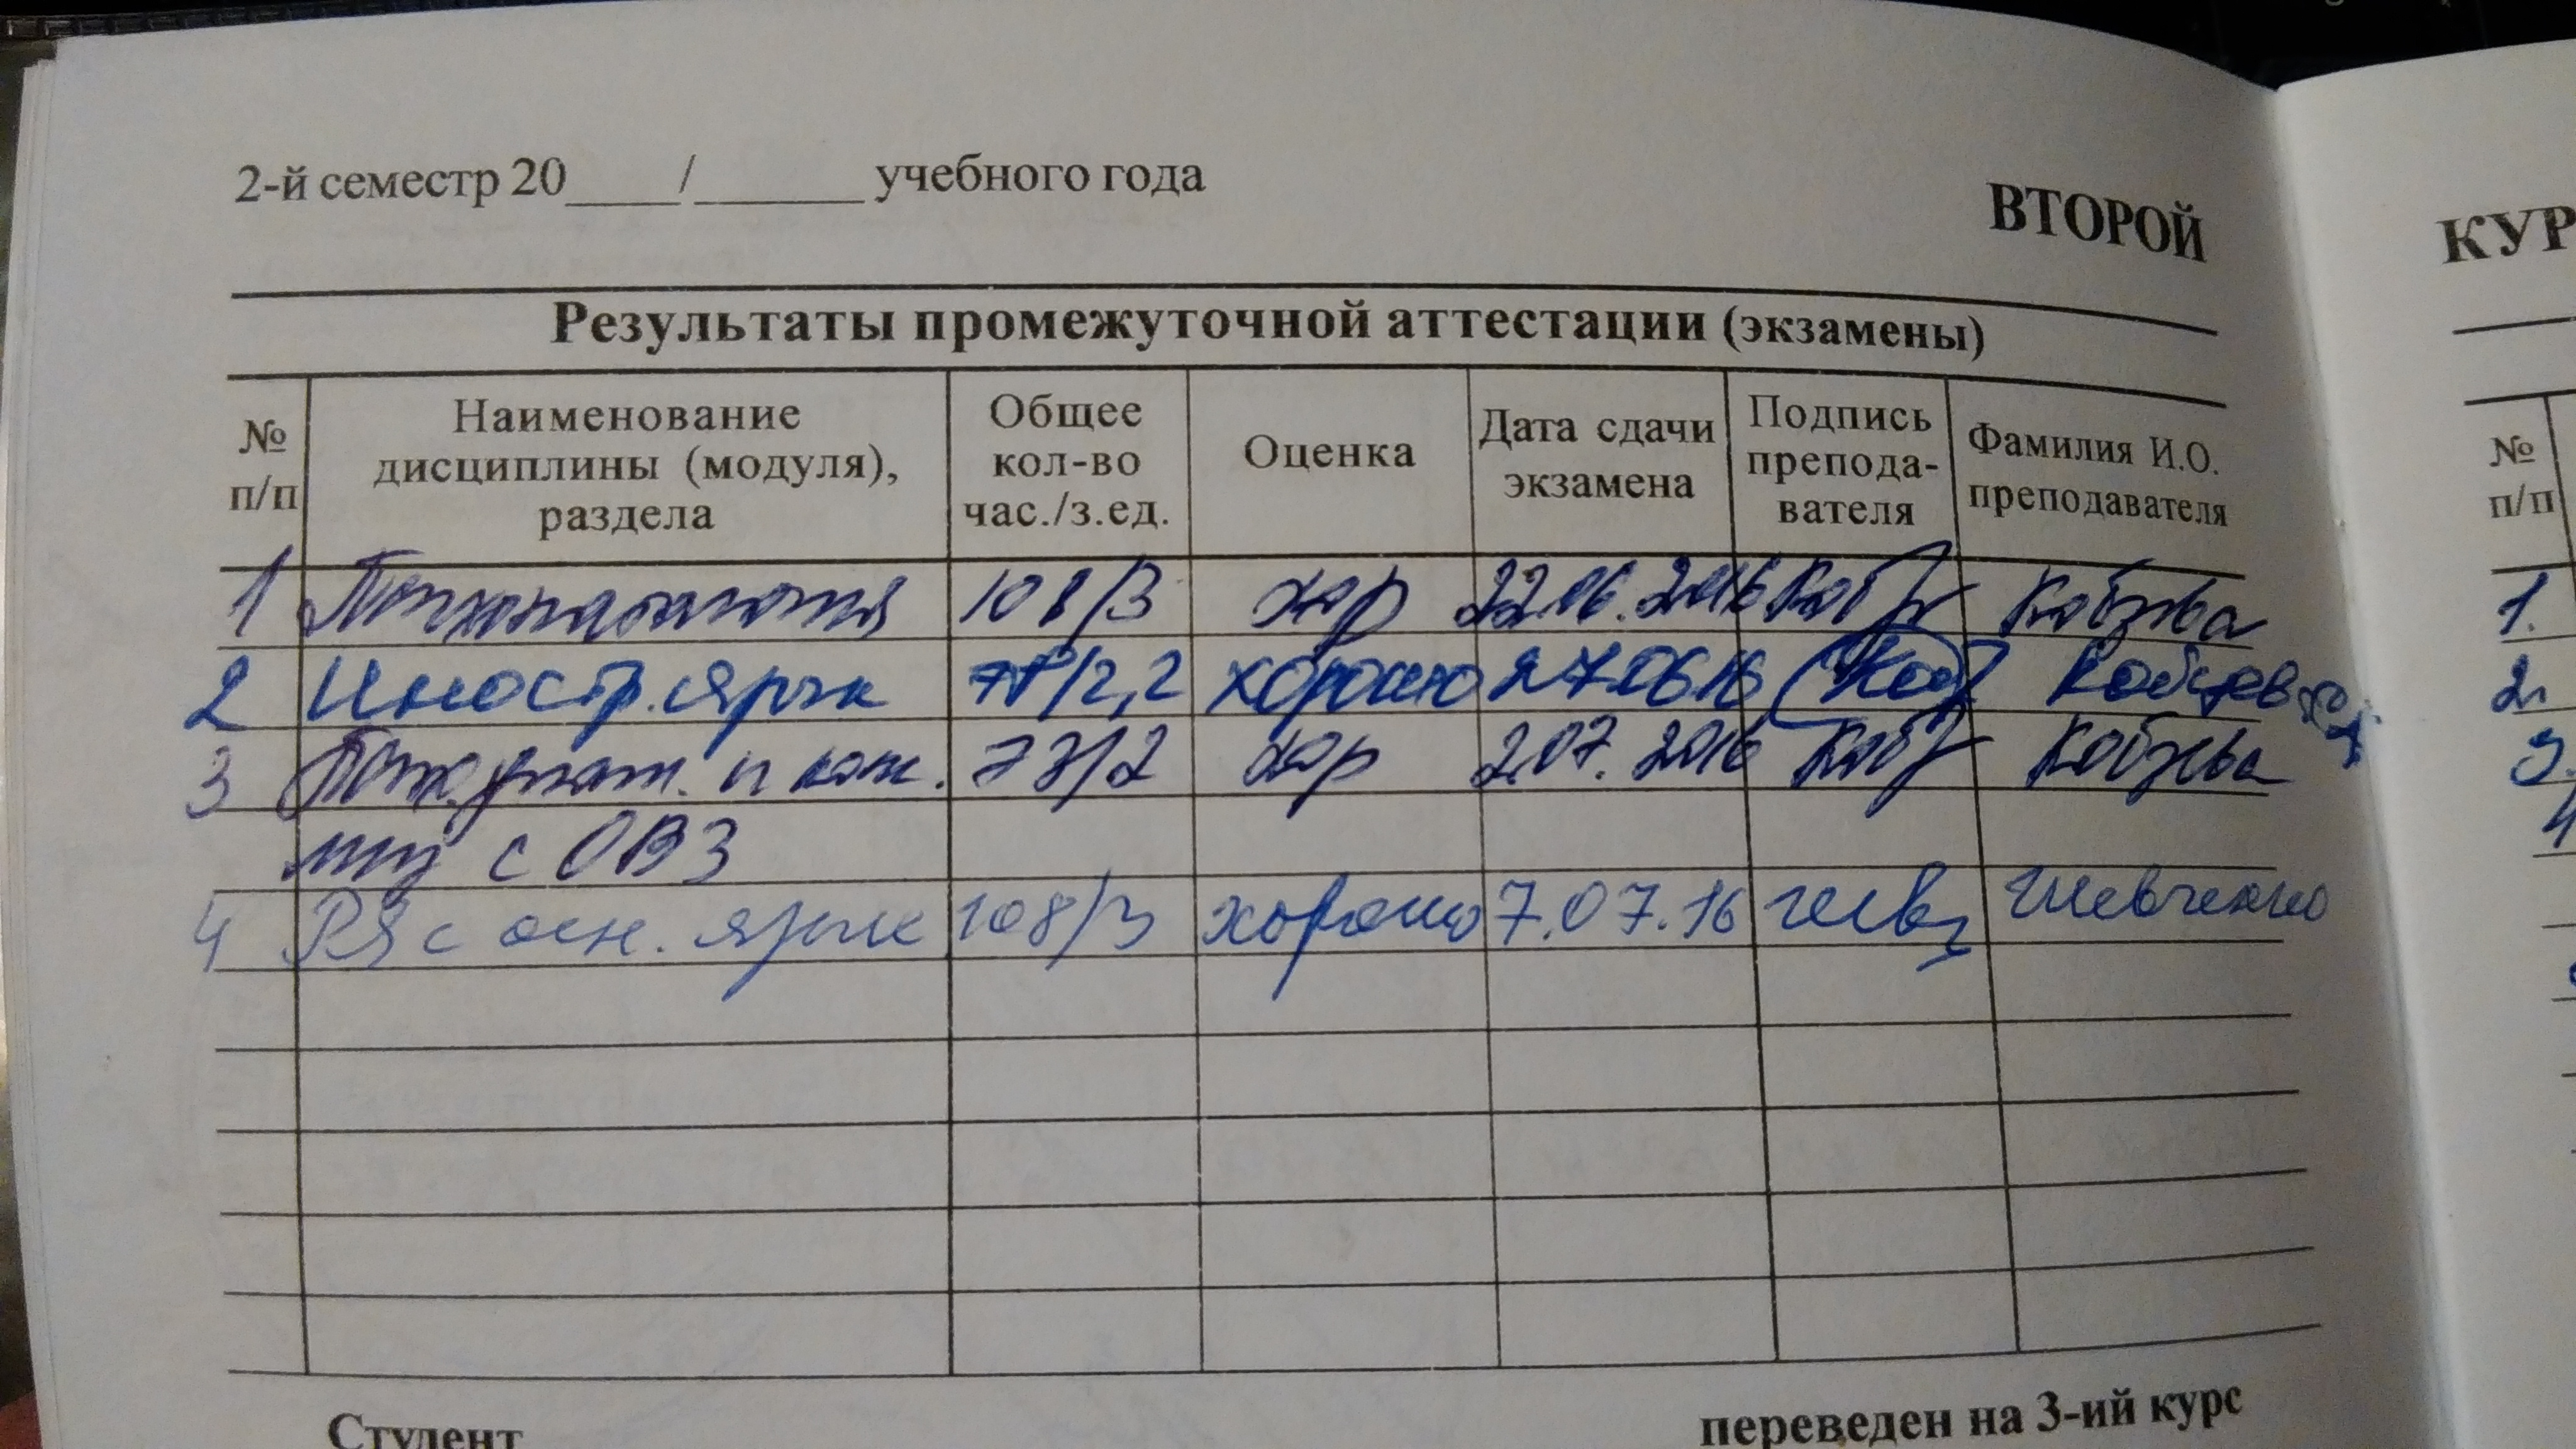 2-й семестр 20____/______ учебного года
ВТОРОЙ
КУР
Результаты промежуточной аттестации (экзамены)
№ п/п
Наименование
дисциплины (модуля),
раздела
Общее
кол-во
час./з.ед.
Оценка
Дата сдачи
экзамена
Подпись
препода-
вателя
Фамилия И.О.
преподавателя
№
п/п
1 Психопатология 108/3 хор 22.06.2016
2 Иностр. язык 78/2,2 хорошо 27.06.16
3 72/2 хор 2.07.2016
с ОВЗ
4 РЯ с осн. язык 108/3 хорошо 7.07.16 Шевченко
1.
2.
3.
4
Студент
переведен на 3-ий курс